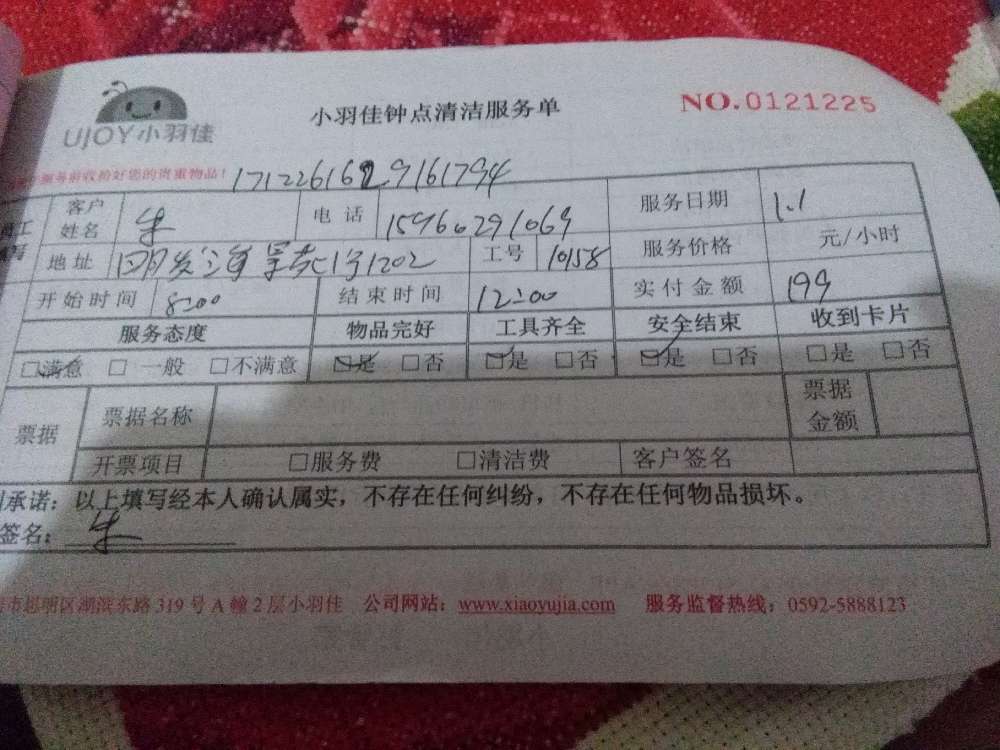 UJOY小羽佳
小羽佳钟点清洁服务单
NO.0121225
服务前收拾好您的贵重物品!
客户姓名 朱 电话 15960291069 服务日期 1.1
地址 1号1202 工号 10158 服务价格 元/小时
开始时间 8:00 结束时间 12:00 实付金额 199
服务态度 物品完好 工具齐全 安全结束 收到卡片
□满意 □一般 □不满意 □是 □否 □是 □否 □是 □否 □是 □否
票据 票据名称 票据金额
开票项目 □服务费 □清洁费 客户签名
承诺:以上填写经本人确认属实,不存在任何纠纷,不存在任何物品损坏。
签名: 朱
市思明区湖滨东路319号A幢2层小羽佳 公司网站:www.xiaoyujia.com 服务监督热线:0592-5888123